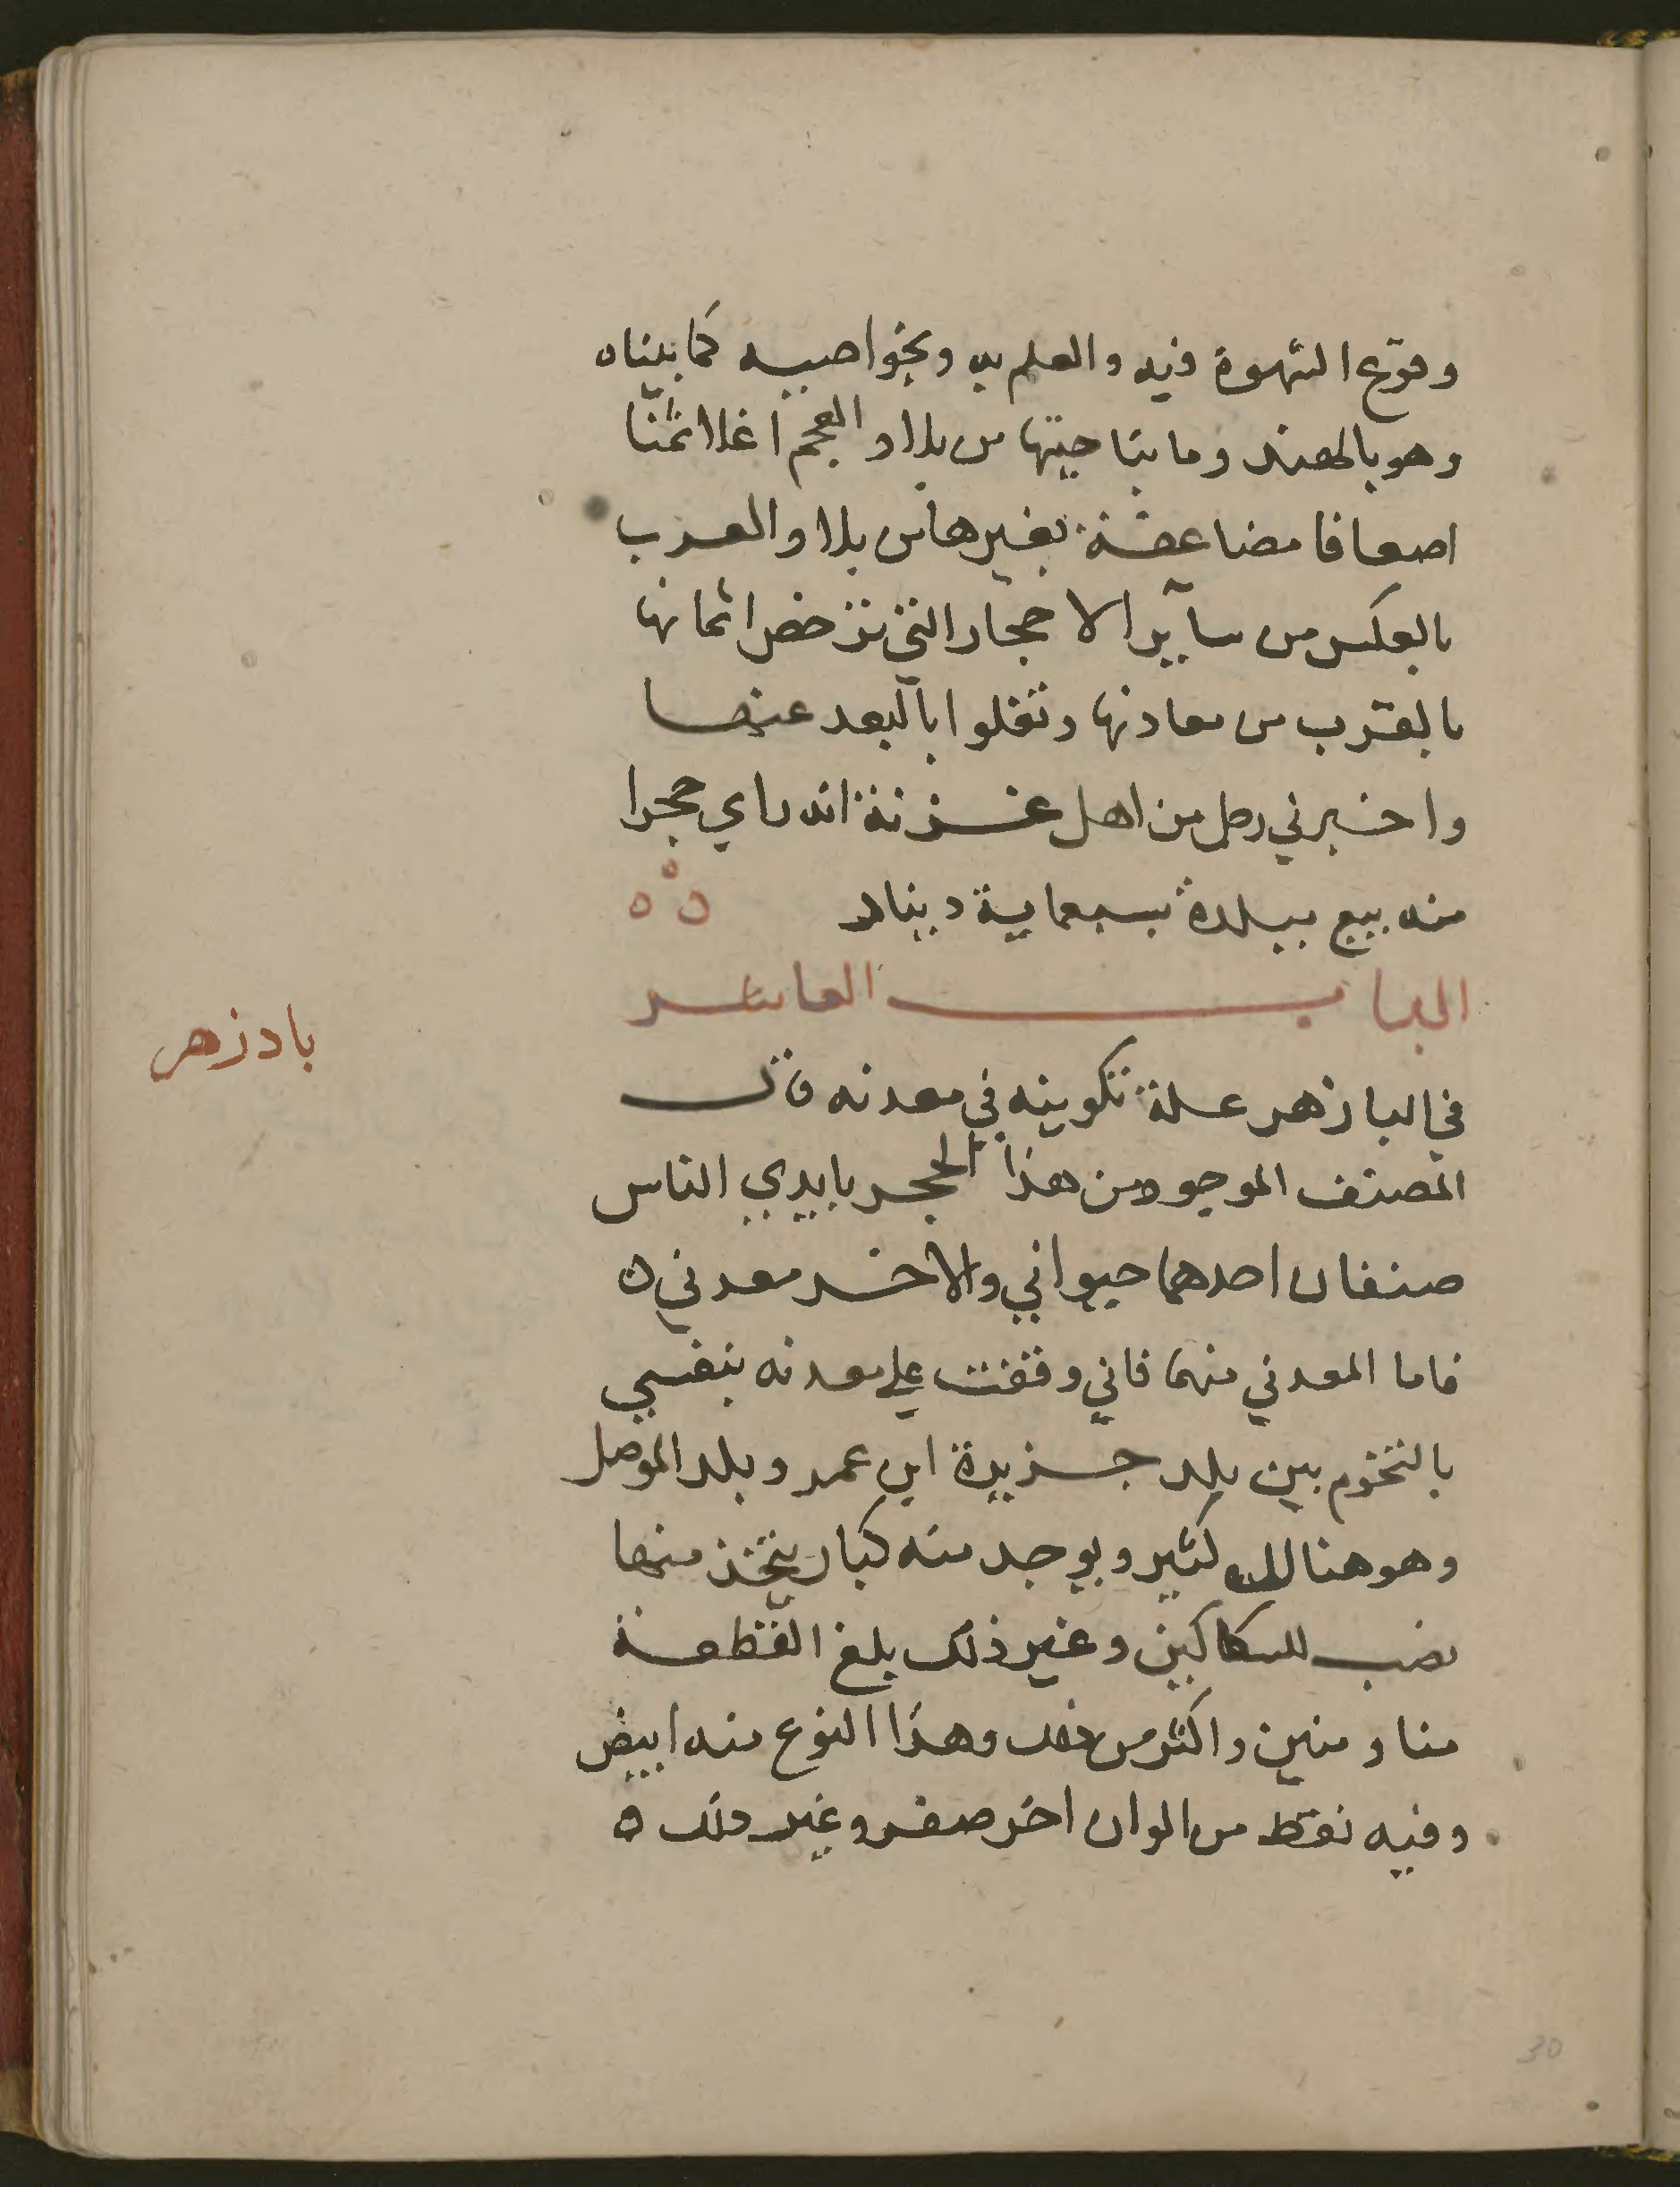 وقوع الشهوة فيه والعلم به وبخواصيه كما بيناه
وهو بالهند وما يتاجيتها من بلاد العجم اغلا ثمنا
اضعافا مضاعفة بغيرها من بلاد العرب
بالعكس من ساير الاحجار التي ترخص اثمانها
بالقرب من معادنها وتغلوا بالبعد عنها
واخبرني رجل من اهل غزنة انه راي حجرا
منه بيع ببلدة بسبعماية دينار ه ه ه
الباب العاشر
بادزهر
في البازهر علة تكوينه في معدنه قال
المصنف الموجود من هذا الحجر بايدي الناس
صنفان احدهما حيواني والاخر معدني ه
فاما المعدني منهما فاني وقفت علي معدنه بنفسي
بالتخوم بين بلد جزيرة ابن عمر وبلد الموصل
وهو هنالك كثير ويوجد منه كبار يتخذ منها
نصب للسكاكين وغير ذلك بلغ القطعة
منا ومنين واكثر من ذلك وهذا النوع منه ابيض
وفيه نقط من الوان اخر صفر وغير ذلك ه
30